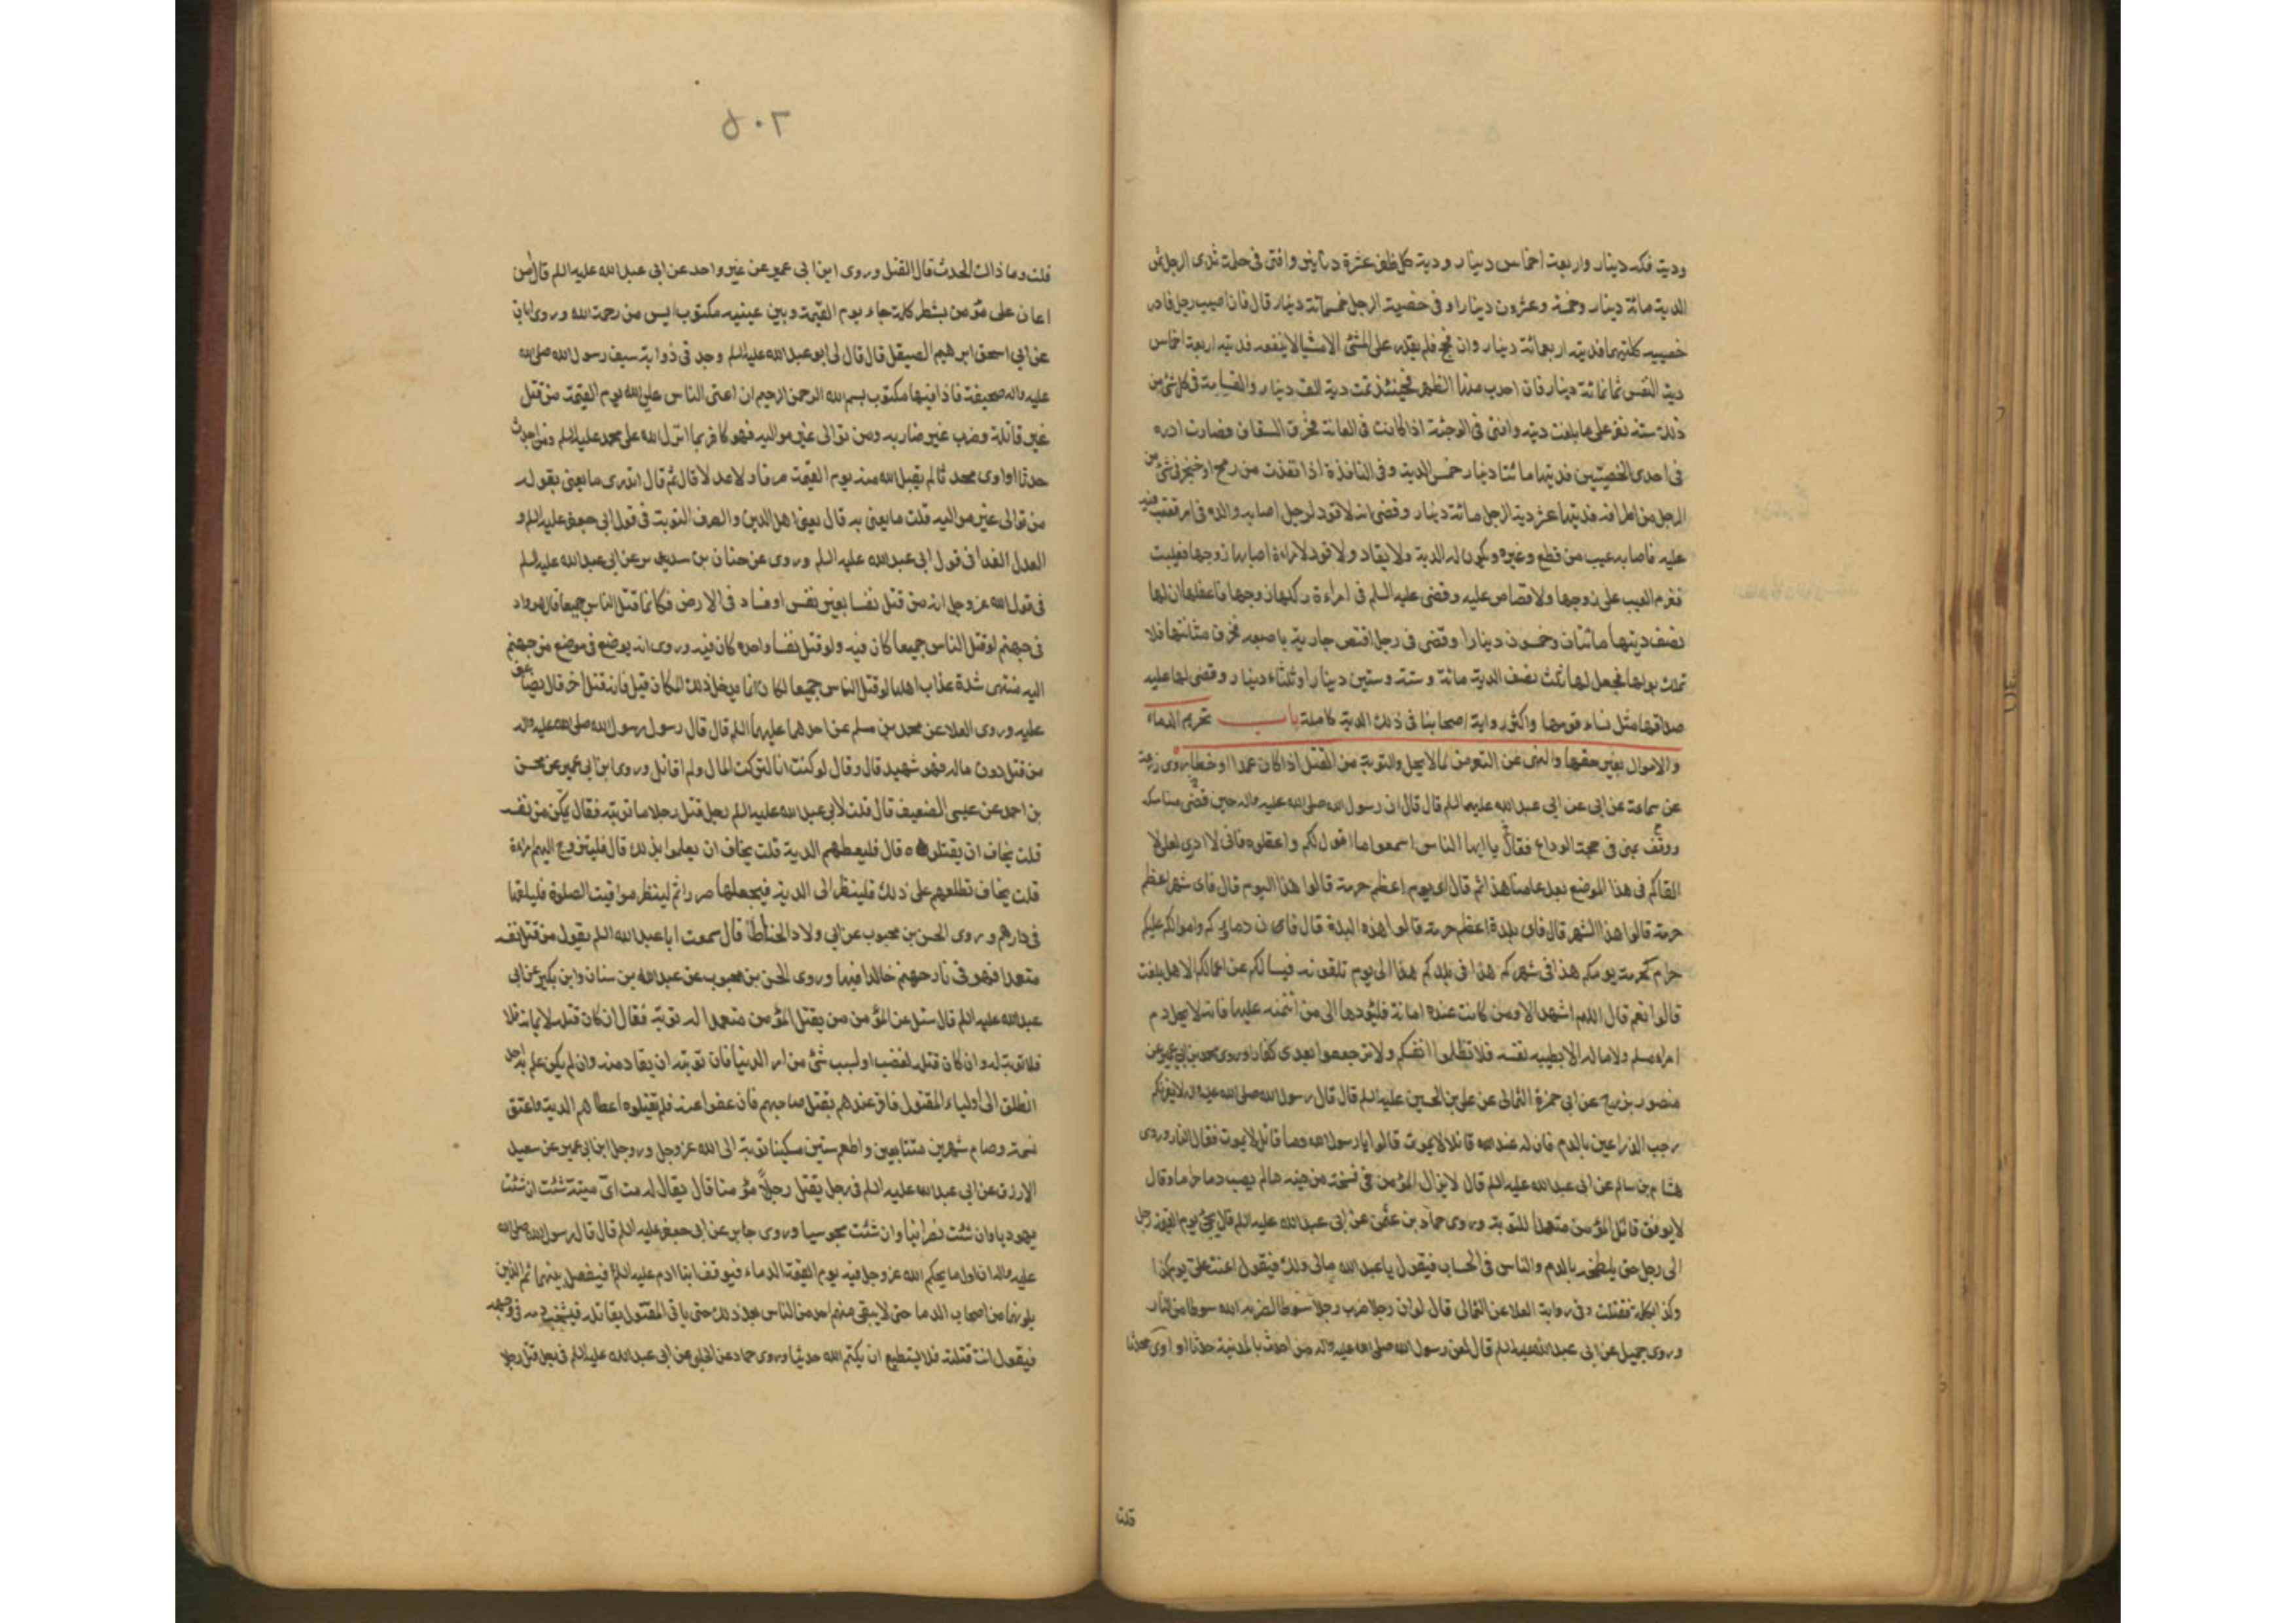 ودية فكه دينار واربعة اخماس دينار ودية كل ظفر عشرة دنانير وافتى فى حلمة ثدى الرجل ثمن
الدية مائة دينار وخمسة وعشرون دينارا وفى خصية الرجل خمسمائة دينار قال فان اصيب رجل فادر
خصييه كلتيهما فديته اربعمائة دينار وان فحج فلم يقدر على المشى الا مشيا لا ينفعه فديته اربعة اخماس
دية النفس ثمانمائة دينار فان احدب منها الظهر فحينئذ تمت ديته الف دينار والقسامة فى كل شئ من
ذلك ستة نفر على ما بلغت ديته وافتى فى الوجئة اذا كانت فى العانة فخرق السفاق فصارت ادرة
فى احدى الخصيتين فديتها مائتا دينار خمس الدية وفى النافذة اذا نفذت من رمح او خنجر فى شئ من
الرجل من اطرافه فديتها عشر دية الرجل مائة دينار وقضى انه لا قود لرجل اصابه والده فى امر يعيب فيه
عليه فاصابه عيب من قطع وغيره ويكون له الدية ولا يقاد ولا قود لامراة اصابها زوجها فعيبت
فغرم العيب على زوجها ولا قصاص عليه وقضى عليه السلم فى امراءة ركبها زوجها فاعفلها ان لها
نصف ديتها مائتان وخمسون دينارا وقضى فى رجل افتض جارية باصبعه فخرق مثانتها فلا
تملك بولها فجعل لها ثلث نصف الدية مائة وستة وستين دينارا وثلثاء دينار وقضى لها عليه
صداقها مثل نساء قومها واكثر رواية اصحابنا فى ذلك الدية كاملة باب تحريم الدماء
والاموال بغير حقها والنهى عن التعرض لما لا يحل والتوبة من القتل اذا كان عمدا او خطا روى زرعة
عن سماعة عن ابى عن ابى عبد الله عليهما السلم قال قال ان رسول الله صلى الله عليه واله حين قضى مناسكه
ووقف بمنى فى حجة الوداع فقال يا ايها الناس اسمعوا ما اقول لكم واعقلوه فانى لا ادرى لعلى لا
القاكم فى هذا الموضع بعد عامنا هذا ثم قال اى يوم اعظم حرمة قالوا هذا اليوم قال فاى شهر اعظم
حرمة قالوا هذا الشهر قال فاى بلدة اعظم حرمة قالوا هذه البلدة قال فان دماءكم واموالكم عليكم
حرام كحرمة يومكم هذا فى شهركم هذا فى بلدكم هذا الى يوم تلقونه فيسالكم عن اعمالكم الا هل بلغت
قالوا نعم قال اللهم اشهد الا ومن كانت عنده امانة فليؤدها الى من ائتمنه عليها فانه لا يحل دم
امرء مسلم ولا ماله الا بطيبة نفسه فلا تظلموا انفسكم ولا ترجعوا بعدى كفارا وروى محمد بن ابى عمير عن
منصور بزرج عن ابى حمزة الثمالى عن على بن الحسين عليه السلم قال قال رسول الله صلى الله عليه واله لا يغرنكم
رحب الذراعين بالدم فان له عند الله قاتلا لا يموت قالوا يا رسول الله وما قاتل لا يموت فقال النار وروى
هشام بن سالم عن ابى عبد الله عليه السلم قال لا يزال المؤمن فى فسحة من دينه ما لم يصب دما حراما وقال
لا يوفق قاتل المؤمن متعمدا للتوبة وروى حماد بن عثمن عن ابى عبد الله عليه السلم قال يجئ يوم القيمة رجل
الى رجل حتى يلطخه بالدم والناس فى الحساب فيقول يا عبد الله مالى ولك فيقول اعنت على يوم كذا
وكذا بكلمة فقتلت وفى رواية العلا عن الثمالى قال لو ان رجلا ضرب رجلا سوطا لضربه الله سوطا من النار
وروى جميل عن ابى عبد الله عليه السلم قال لعن رسول الله صلى الله عليه واله من احدث بالمدينة حدثا او اوى محدثا
قلت
٥٠٢
قلت وما ذالك الحدث قال القتل وروى ابن ابى عمير عن غير واحد عن ابى عبد الله عليه السلم قال من
اعان على مؤمن بشطر كلمة جاء يوم القيمة وبين عينيه مكتوب ايس من رحمة الله وروى ابان
عن ابى اسحق ابرهيم الصيقل قال قال لى ابو عبد الله عليه السلم وجد فى ذوابة سيف رسول الله صلى الله
عليه واله صحيفة فاذا فيها مكتوب بسم الله الرحمن الرحيم ان اعتى الناس على الله يوم القيمة من قتل
غير قاتله وضرب غير ضاربه ومن توالى غير مواليه فهو كافر بما انزل الله على محمد عليه السلم ومن احدث
حدثا او اوى محدثا لم يقبل الله منه يوم القيمة صرفا ولا عدلا قال ثم قال اتدرى ما يعنى بقوله
من توالى غير مواليه قلت ما يعنى به قال يعنى اهل الدين والصرف التوبة فى قول ابى جعفر عليه السلم و
العدل الفدا فى قول ابى عبد الله عليه السلم وروى عن حنان بن سدير عن ابى عبد الله عليه السلم
فى قول الله عز وجل انه من قتل نفسا بغير نفس او فساد فى الارض فكانما قتل الناس جميعا قال هو واد
فى جهنم لو قتل الناس جميعا كان فيه ولو قتل نفسا واحده كان فيه وروى انه يوضع فى موضع من جهنم
اليه منتهى شدة عذاب اهلها لو قتل الناس جميعا لكان انما يدخل ذلك المكان قيل فانه قتل اخر قال يضاعف
عليه وروى العلا عن محمد بن مسلم عن احدهما عليهما السلم قال قال رسول رسول الله صلى الله عليه واله
من قتل دون ماله فهو شهيد قال وقال لو كنت انا لتركت المال ولم اقاتل وروى ابن ابى عمير عن محسن
بن احمد عن عيسى الضعيف قال قلت لابى عبد الله عليه السلم رجل قتل رجلا ما توبته فقال يمكن من نفسه
قلت يخاف ان يقتلوه قال فليعطهم الدية قلت يخاف ان يعلموا بذلك قال فليتزوج اليهم امراة
قلت يخاف تطلعهم على ذلك فلينظر الى الدية فيجعلها صررا ثم لينظر مواقيت الصلوة فليلقها
فى دارهم وروى الحسن بن محبوب عن ابى ولاد الحناط قال سمعت ابا عبد الله السلم يقول من قتل نفسه
متعمدا فهو فى نار جهنم خالدا فيها وروى الحسن بن محبوب عن عبد الله بن سنان وابن بكير عن ابى
عبد الله عليه السلم قال سئل عن المؤمن من يقتل المؤمن متعمدا له توبة فقال ان كان قتله لايمانه فلا
فلا توبة له وان كان قتله لغضب او لسبب شئ من امر الدنيا فان توبته ان يقاد منه وان لم يكن علم به احد
انطلق الى اولياء المقتول فاقر عندهم بقتل صاحبهم فان عفوا عنه فلم يقتلوه اعطاهم الدية واعتق
نسمة وصام شهرين متتابعين واطعم ستين مسكينا توبة الى الله عز وجل وروى ابن ابى عمير عن سعيد
الازرق عن ابى عبد الله عليه السلم فى رجل يقتل رجلا مؤمنا قال يقال له مت اى ميتة شئت ان شئت
يهوديا وان شئت نصرانيا وان شئت مجوسيا وروى جابر عن ابى جعفر عليه السلم قال قال رسول الله صلى الله
عليه واله ان اول ما يحكم الله عز وجل فيه يوم القيمة الدماء فيوقف ابنا ادم عليه السلم فيفصل بينهما ثم الذين
يلونهما من اصحاب الدما حتى لا يبقى منهم احد من الناس بعد ذلك حتى ياتى المقتول بقاتله فيشخب دمه فى وجهه
فيقول انت قتلته فلا يستطيع ان يكتم الله حديثا وروى حماد عن الحلبى عن ابى عبد الله عليه السلم فى رجل قتل رجلا